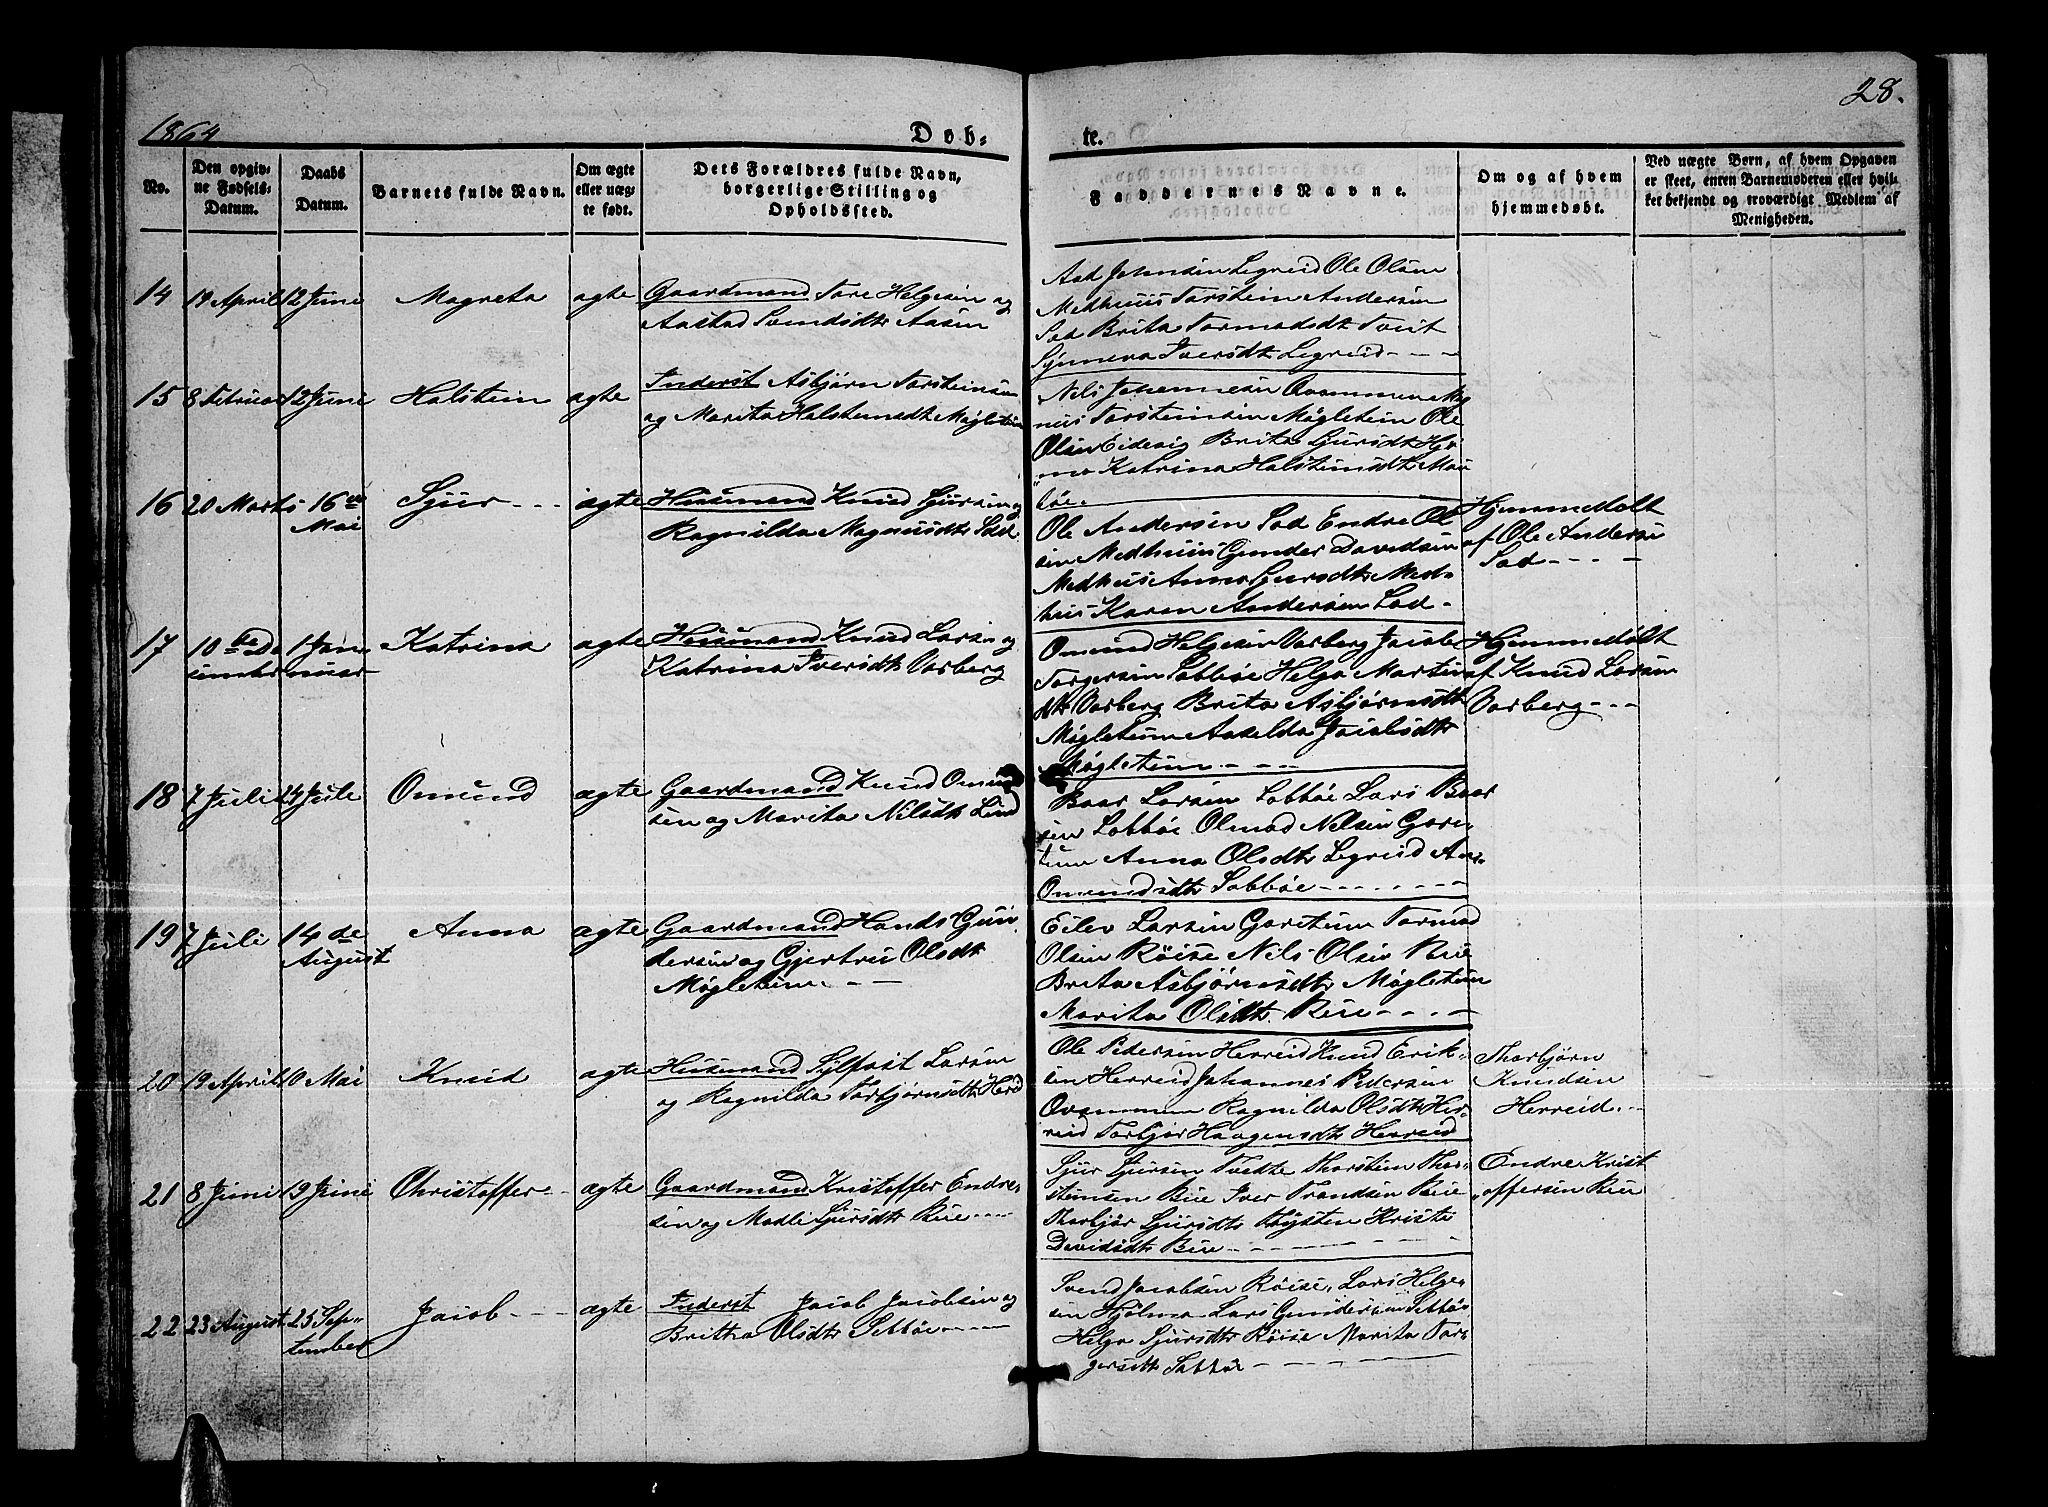 1864
28.
Døb-
te.
No.
Den opgiv-
ne Fødsels-
Datum.
Daabs
Datum.
Barnets fulde Navn.
Om ægte
eller uæg-
te født.
Dets Forældres fulde Navn,
borgerlige Stilling og
Opholdssted.
Faddernes Navne.
Om og af hvem
hjemmedøbt.
Ved uægte Børn, af hvem Opgaven
er skeet, enten Barnemoderen eller hvil-
ket bekjendt og troværdigt Medlem af
Menigheden.
14
April
12 Juni
Magreta
ægte
Gaardmand Tore Helgesen og
Aastad Svendsdtr Aasen
Aad Johnsen Legreid Ole Olsen
Medhuus Torstein Andersen
Sad Brita Tormodsdtr Tveit
Synneva Iversdtr Legreid - - -
15
8 Februar
12 Juni
Halstein
ægte
Inderst Asbjørn Torsteinsen
og Marita Halsteinsdtr Møgletun
Nils Johannesen Qvammen Mag
nus Torsteinsen Møgletun Ole
Olsen Eidevig Brita Sjursdtr Hjø
mo Katrina Halsteinsdtr Mau
bøe.
16
20 Marts
16de
Mai
Sjur - - -
ægte
Huusmand Knud Sjursen og
Ragnilda Magnusdtr Sad
Ole Andersen Sad Endre Ol
sen Medhuus Gunder Davidsen
Medhus Anna Sjursdtr Med-
hus Karen Andersen Sad -
Hjemmedøbt
af Ole Anderse
Sad - - - -
17
10de De
cember
1 Jan
nuar
Katrina
ægte
Huusmand Knud Larsen og
Katrina Iversdtr Varberg
Omund Helgesen Varberg Jacob
Torgersen Sæbbøe Helga Martin
dtr Varberg Brita Asbjørnsdtr
Møgletun Aaselda Jacobsdtr
Møgletun - - -
Hjemmedøbt
af Knud Larsen
Varberg - - -
18
7 Juli
24 Juli
Omund
ægte
Gaardmand Knud Omun
sen og Marita Nilsdtr Lind
Baar Larsen Sæbbøe Lars Baar
sen Sæbbøe Olmod Nelsen Gare-
tun Anna Olsdtr Legreid
Omundsdtr Sæbbøe - - - - -
19
7 Juli
14de
August
Anna
ægte
Gaardmand Hands Gun
dersen og Gjertru Olsdtr
Møgletun - -
Eilev Larsen Garetun Tormod
Olsen Røise Nils Olsen Bue
Brita Asbjørnsdtr Møgletun
Marita Olsdtr Bue - - - -
20
19 April
Mai
Knud
ægte
Huusmand Sylfast Larsen
og Ragnilda Torbjørnsdtr Hereid
Ole Pedersen Herreid Knud Erik-
sen Herreid Johannes Pedersen
Qvammen Ragnilda Olsdtr Her-
reid Torbjør Haagensdtr Herreid
Thorbjørn
Knudsen
Herreid.--
21
8 Juni
19 Juni
Christoffer -
ægte
Gaardmand Kristoffer Endre-
sen og Madli Sjursdtr Bue - - -
Sjur Sjursen Tvedte Thorstein Thor-
steinsen Bue Iver Trondsen Bue
Thorbjør Sjursdtr Thysten Krista
Davidsdtr Bue - - - -
Endre Krist
offersen Bue
22
23 August
25 Sep-
tember
Jacob - - -
ægte
Inderst Jacob Jacobsen og
Britha Olsdtr Sæbbøe - - -
Svend Jacobsen Røise, Lars Helge-
sen Hjølmo Lars Gundersen Sæbbøe
Helga Sjursdtr Røise Marita Tor-
gersdtr Sæbbøe - - - -